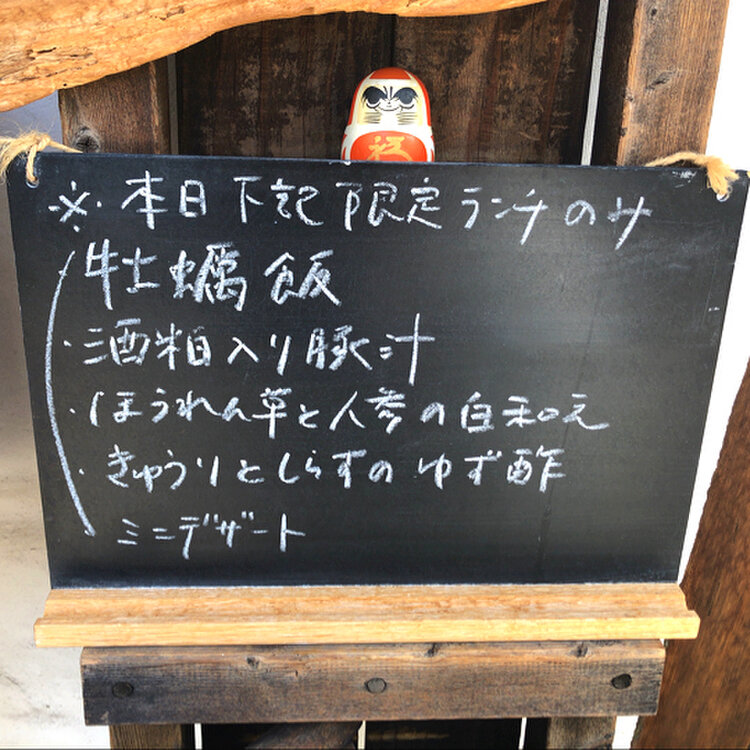 福
※本日下記限定ランチのサ
牡蠣飯
・酒粕入り豚汁
・ほうれん草と人参の白和え
・きゅうりとしらすのゆず酢
ミニデザート